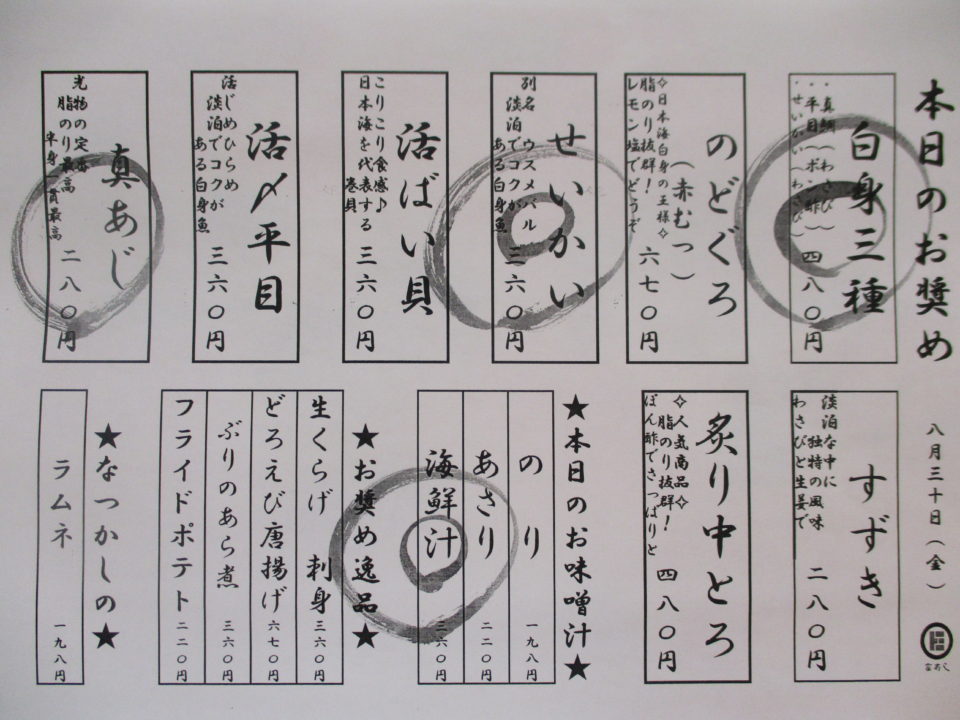 本日のお奨め
八月三十日(金)
白身三種
・真鯛(わさび)
・平目(ポン酢)
・せいかい(わさび)
四八〇円
のどぐろ
(赤むつ)
✧日本海白身の王様✧
脂のり抜群!
レモン塩でどうぞ
六七〇円
せいかい
別名 ウスメバル
淡泊でコクが
ある白身魚
三六〇円
活ばい貝
こりこり食感♪
日本海を代表する
巻貝
三六〇円
活〆平目
活じめひらめ
淡泊でコクが
ある白身魚
三六〇円
真あじ
光物の定番
脂のり最高
半身一貫最高
二八〇円
すずき
淡泊な中に
独特の風味
わさびと生姜で
二八〇円
炙り中とろ
✧人気商品✧
脂のり抜群!
ぽん酢でさっぱりと
四八〇円
★本日のお味噌汁★
のり 一九八円
あさり 二二〇円
海鮮汁 三六〇円
★お奨め逸品★
生くらげ 刺身 三六〇円
どろえび唐揚げ 六七〇円
ぶりのあら煮 三六〇円
フライドポテト 二二〇円
★なつかしの★
ラムネ 一九八円